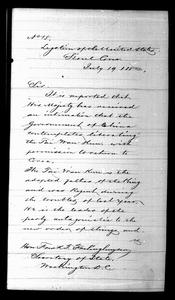 No 15.
Legation of the United States
Seoul Corea
July 19, 188
Sir
It is reported that
His Majesty has received
an intimation that the
Government of China
contemplates liberating
the Tai Wan Kun is with
permission to return to
Corea.
The Tai Wan Kun is the
adopted father of the King
and was Regent during
the troubles of last year.
He is the leader of the
party antagonistic to the
new order of things, and
Hon Fred'k T. Frelinghuysen
Secretary of State,
Washington D.C.